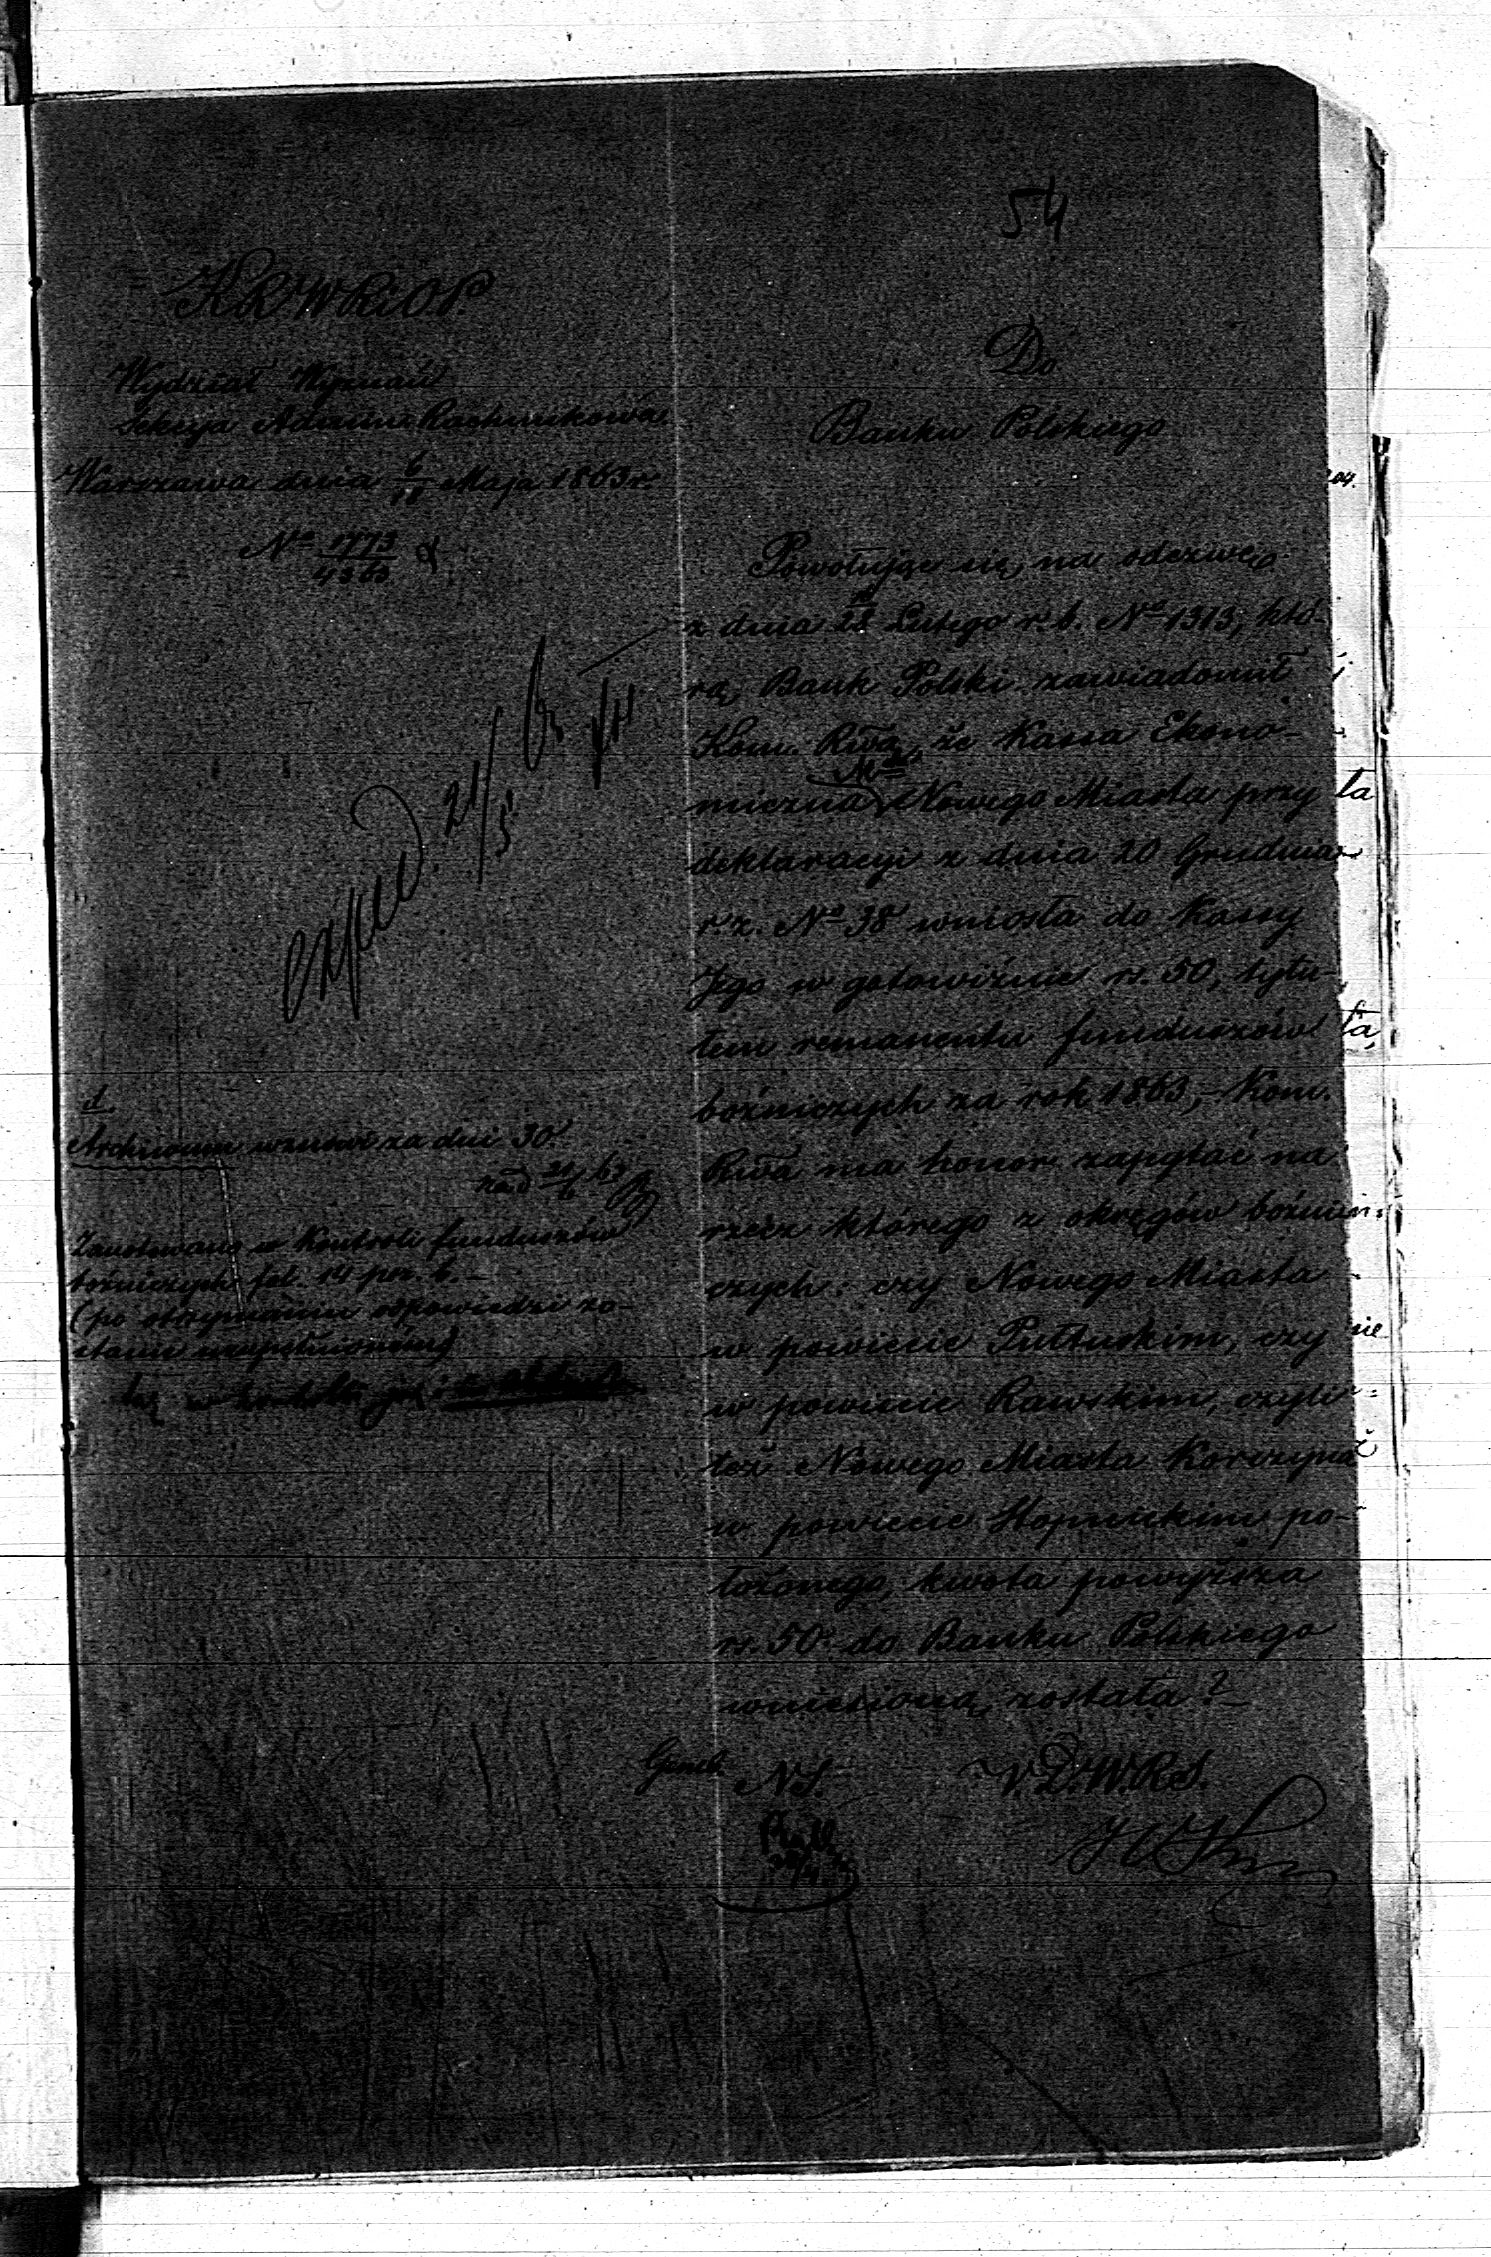 54
KRWRiOP.
Wydział Wyznań
Sekcja Admin: Rachunkowa
Warszawa dnia 6/18 Maja 1863 r.
No 1773/4363
exped. 21/5
Do
Banku Polskiego
Powołując się na odezwę
z dnia Lutego r.b. No 1313, któ-
rą Bank Polski zawiadomił
Kom. Rwą, że Kassa Ekono-
miczna Mta Nowego Miasta przy
deklaracyi z dnia 20 Grudnia
r.z. No 38 wniosła do Kassy
Jego w gotowiźnie rs. 50, tytu-
łem remanentu funduszów
bożniczych za rok 1863, – Kom.
Rwa ma honor zapytać na
rzecz którego z okręgów bożni-
czych: czy Nowego Miasta
w powiecie Pułtuskim, czy
w powiecie Rawskim, czyli
też Nowego Miasta Korczyna
w powiecie Stopnickim po-
łożonego, kwota powyższa
rs. 50 do Banku Polskiego
wniesioną została?
d
Archiwum wznowi za dni 30
Zanotowano w Kontroli funduszów
bożniczych fol. 14 poz. 6. –
(po otrzymaniu odpowiedzi zo-
stanie uzupełnionem)
NS.
V. D.W.R.S.